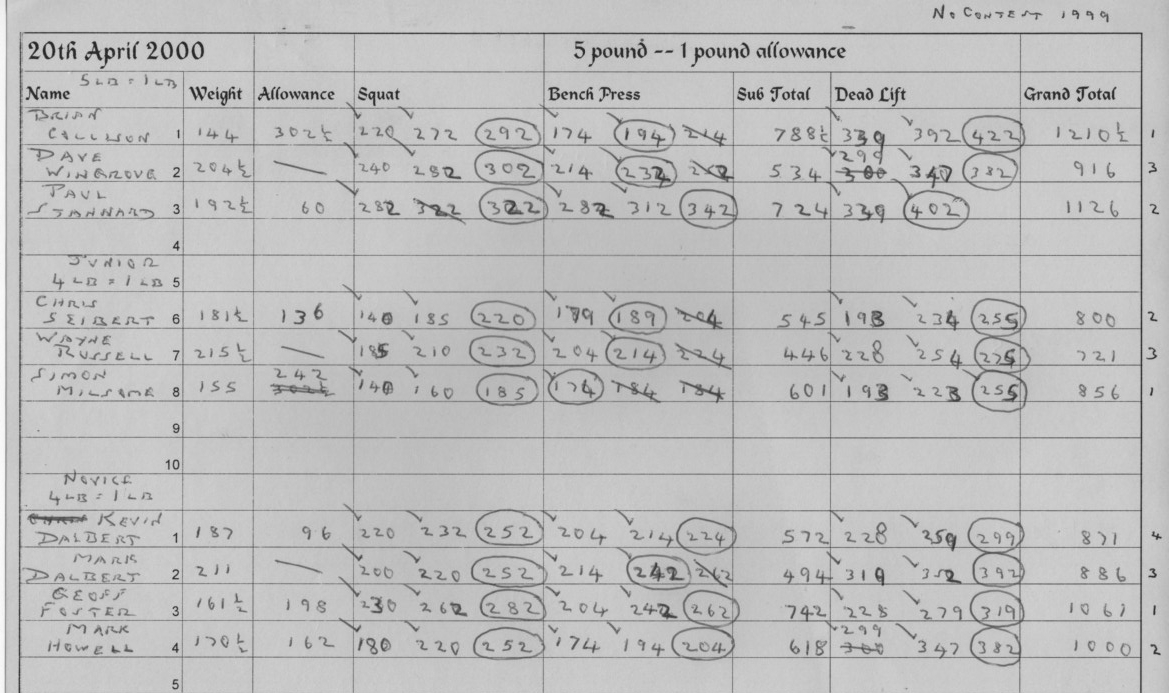 NO CONTEST 1999
20th April 2000 5 pound -- 1 pound allowance
5 LB = 1 LB
Name Weight Allowance Squat Bench Press Sub Total Dead Lift Grand Total
BRIAN
CALLISON 1 144 302½ 220 272 292 174 194 214 788½ 339 392 422 1210½ 1
DAVE 299
WINGROVE 2 204½ — 240 282 302 214 232 534 300 347 382 916 3
PAUL
STANNARD 3 192½ 60 282 322 322 282 312 342 724 339 402 1126 2
4
JUNIOR
4 LB = 1 LB 5
CHRIS
SEIBERT 6 181½ 136 140 185 220 179 189 204 545 193 234 255 800 2
WAYNE
RUSSELL 7 215½ — 185 210 232 204 214 224 446 228 254 275 721 3
SIMON 242
MILSOME 8 155 302½ 140 160 185 174 184 184 601 193 223 255 856 1
9
10
NOVICE
4 LB = 1 LB
CHRIS KEVIN
DALBERT 1 187 96 220 232 252 204 214 224 572 228 259 299 871 4
MARK
DALBERT 2 211 — 200 220 252 214 242 262 494 319 352 392 886 3
GEOFF
FOSTER 3 161½ 198 230 262 282 204 242 262 742 228 279 319 1061 1
MARK 299
HOWELL 4 170½ 162 180 220 252 174 194 204 618 300 347 382 1000 2
5